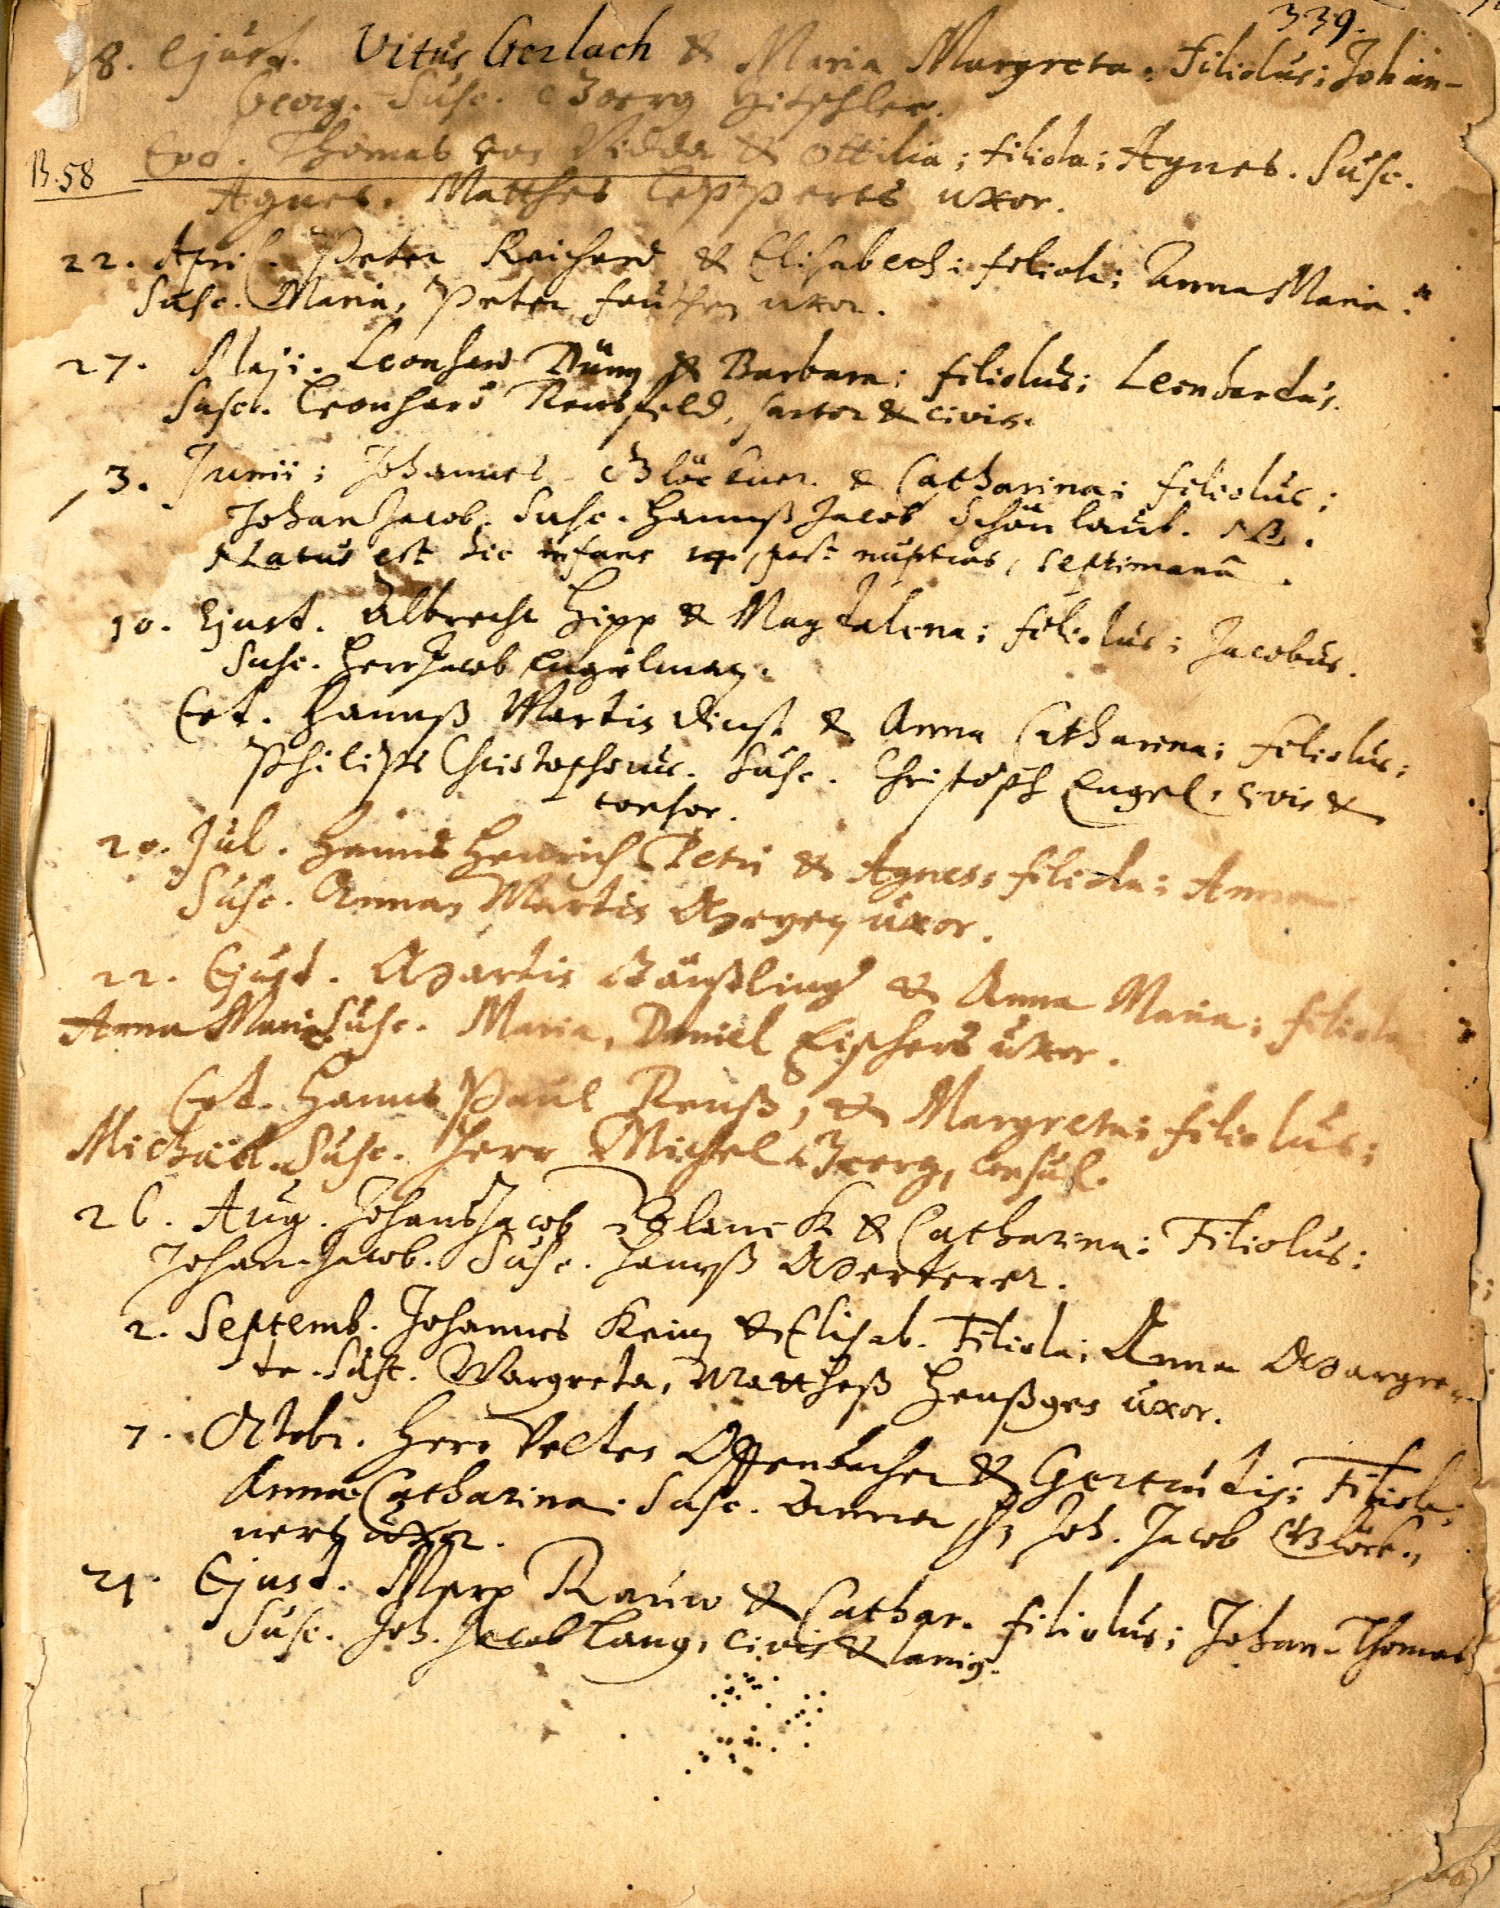 339.
18. Ejusd. Vitus Gerlach & Maria Margreta. Filiolus; Johan-
Georg. Susc. Georg Hitschler.
B.58
Eod. Thomas von Nidda & Ottilia; filiola; Agnes. Susc.
Agnes, Matthes Lepperts uxor.
22. April. Peter Reichard & Elisabeth; filiola; Anna Maria.
Susc. Maria, Peter uxor.
27. Maji. Leonhard & Barbara; filiolus; Leonhardus.
Susc. Leonhard Rensfeld, sartor & civis.
13. Junii; Johannes Glöckner & Catharina; filiolus;
Johan Jacob. Susc. Hannß Jacob Schönlaub. NB.
Natus est hic infans post nuptias, septimana.
10. Ejusd. Albrecht Hipp & Magdalena; filiolus; Jacobus.
Susc. Herr Jacob Engelman.
Eod. Hannß Martin Dinst & Anna Catharina; filiolus;
Philips Christophorus. Susc. Christoph Engel, civis &
tonsor.
20. Jul. Hanns Henrich Petri & Agnes; filiola; Anna
Susc. Anna, Martin Meyen uxor.
22. Ejusd. Martin Gänßling & Anna Maria; filiola
Anna Maria. Susc. Maria, Daniel Fischers uxor.
Eod. Hanns Paul Reuß, & Margreta; filiolus;
Michäel. Susc. Herr Michel Georg, consul.
26. Aug. Johans Jacob Blanck & Catharina; Filiolus;
Johan-Jacob. Susc. Hannß Merterer.
2. Septemb. Johannes Keim & Elisab. Filiola; Anna Margre-
te. Susc. Margreta, Mattheß Henßges uxor.
7. Octobr. Herr Velten Offenbacher & Gertrudis; Filiola;
Anna-Catharina. Susc. Anna, Joh. Jacob Glöck-
nerß uxor.
21. Ejusd. Marx Rauw & Cathar. filiolus; Johan-Thomas
Susc. Joh. Jacob Lang, civis & lanio.